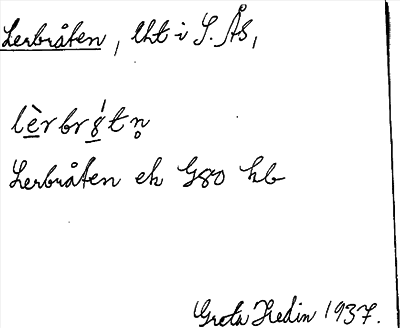 Lerbråten, lht i S. Ås,
lèrbrǻtn̥
Lerbråten ek G80 kb
Greta Hedin 1937.